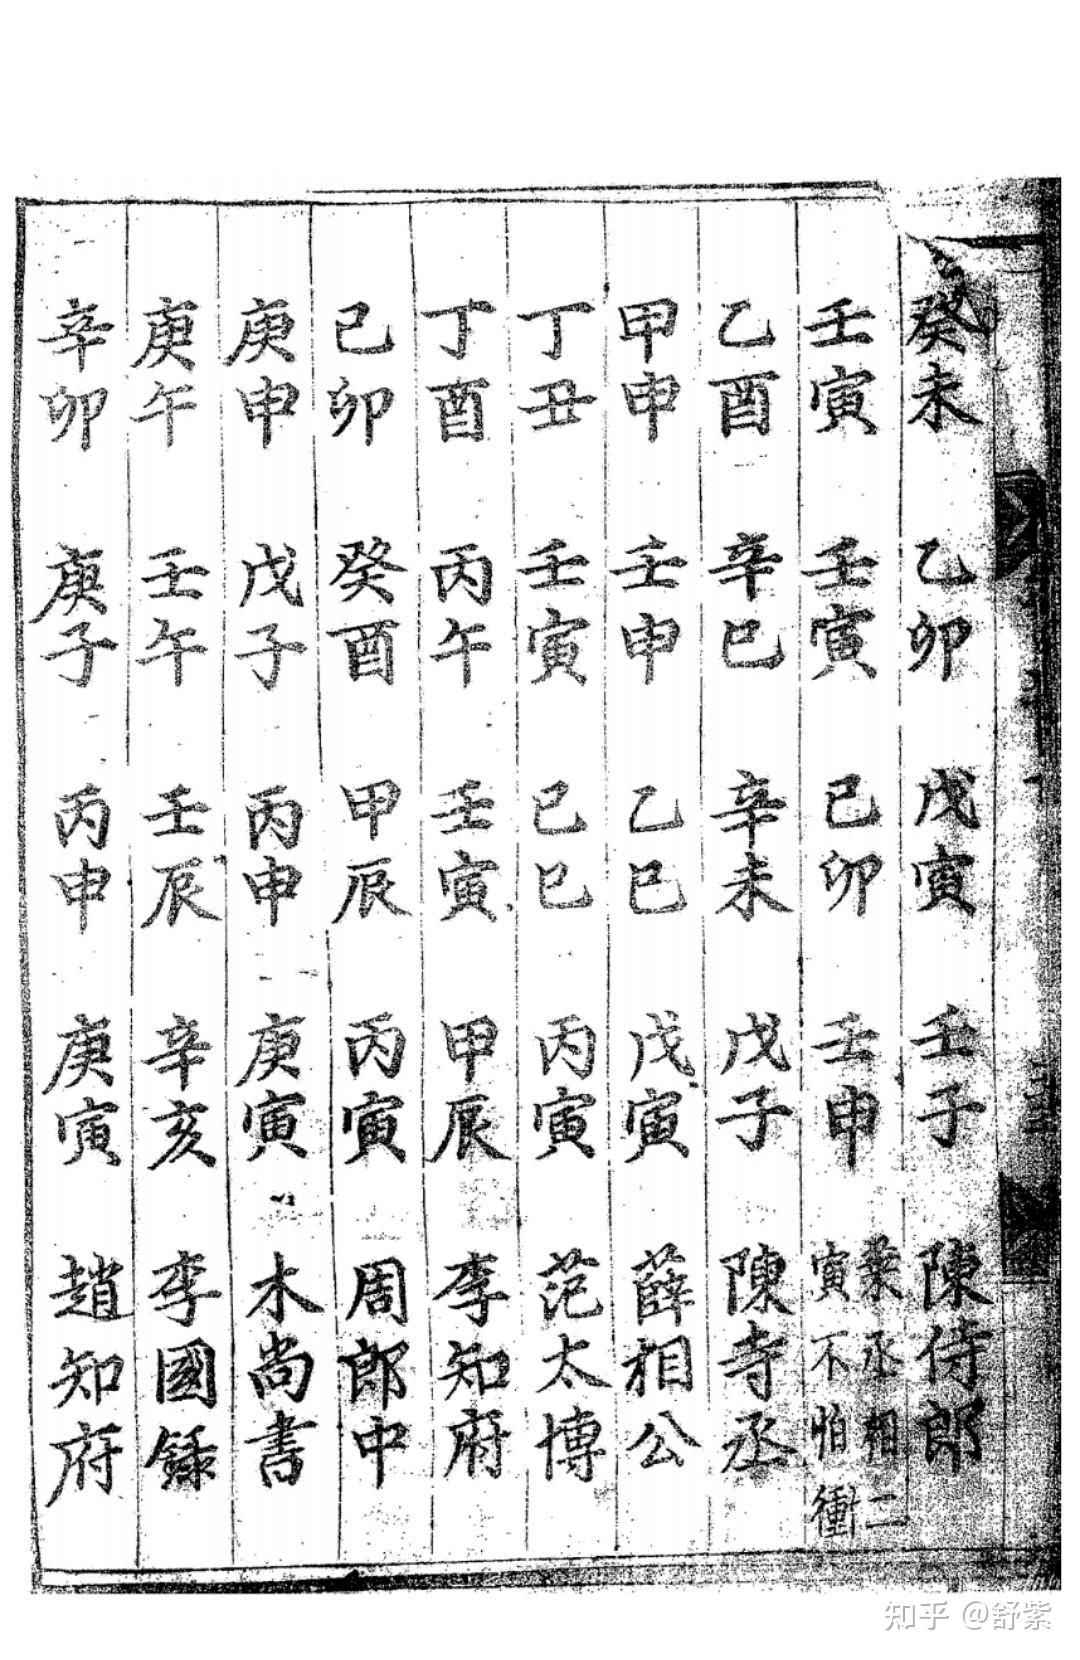 癸未 乙卯 戊寅 壬子 陳侍郎
壬寅 壬寅 己卯 壬申 葉丞相二
寅不怕衝
乙酉 辛巳 辛未 戊子 陳寺丞
甲申 壬申 乙巳 戊寅 薛相公
丁丑 壬寅 己巳 丙寅 范太博
丁酉 丙午 壬寅 甲辰 李知府
己卯 癸酉 甲辰 丙寅 周郎中
庚申 戊子 丙申 庚寅 木尚書
庚午 壬午 壬辰 辛亥 李國録
辛卯 庚子 丙申 庚寅 趙知府
知乎 @舒紫